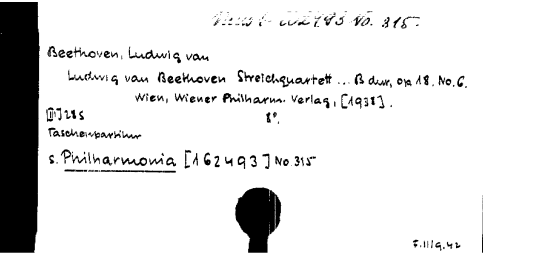 No. 315.
Beethoven, Ludwig van
Ludwig van Beethoven Streichquartett ... B dur, op 18. No. 6.
Wien, Wiener Philharm. Verlag, [1938].
III] 28 S 8°.
Taschenpartitur
s. Philharmonia [162493] No. 315
F. III/9. 42